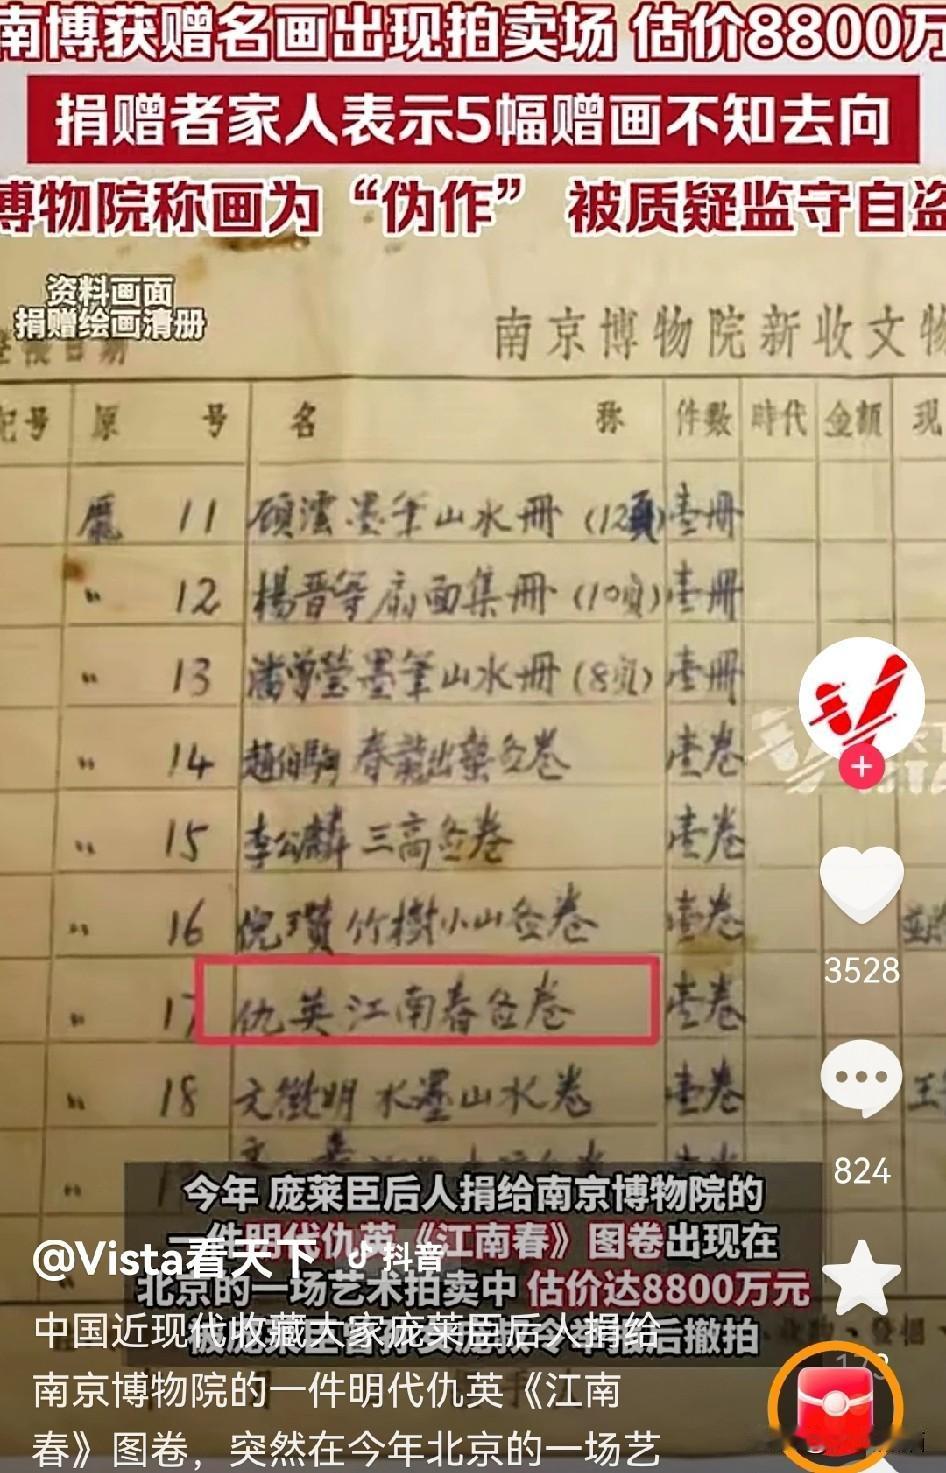 南博获赠名画出现拍卖场 估价8800万
捐赠者家人表示5幅赠画不知去向
博物院称画为“伪作” 被质疑监守自盗
资料画面
捐赠绘画清册
南京博物院新收文物
记号 原 号 名 称 件数 時代 金額 现
龐 11 顾澐墨笔山水冊 (12頁) 壹冊
〃 12 楊晋等扇面集冊 (10页) 壹冊
〃 13 潘曾瑩墨筆山水冊 (8页) 壹冊
〃 14 趙伯駒 春 卷 壹卷
〃 15 李公麟 三高图卷 壹卷
〃 16 倪瓒 竹樹小山图卷 壹卷
〃 17 仇英 江南春图卷 壹卷
〃 18 文徵明 水墨山水卷 壹卷
今年 庞莱臣后人捐给南京博物院的
一件明代仇英《江南春》图卷出现在
北京的一场艺术拍卖中 估价达8800万元
后撤拍
@Vista看天下 抖音
中国近现代收藏大家庞莱臣后人捐给
南京博物院的一件明代仇英《江南
春》图卷，突然在今年北京的一场艺
3528
824